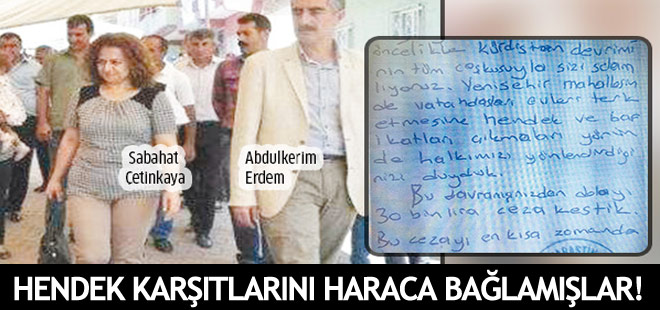 Sabahat
Çetinkaya
Abdulkerim
Erdem
öncelikle Kürdistan devrimi
nin tüm coşkusuyla sizi selam
lıyoruz. Yenişehir mahallesin
de vatandaşları evleri terk
etmesine hendek ve bar
ikatları çıkmaları yönün
de halkımızı yönlendirdiği
nizi duyduk.
Bu davranışınızdan dolayı
30 bin lira ceza kestik.
Bu cezayı en kısa zamanda
HENDEK KARŞITLARINI HARACA BAĞLAMIŞLAR!